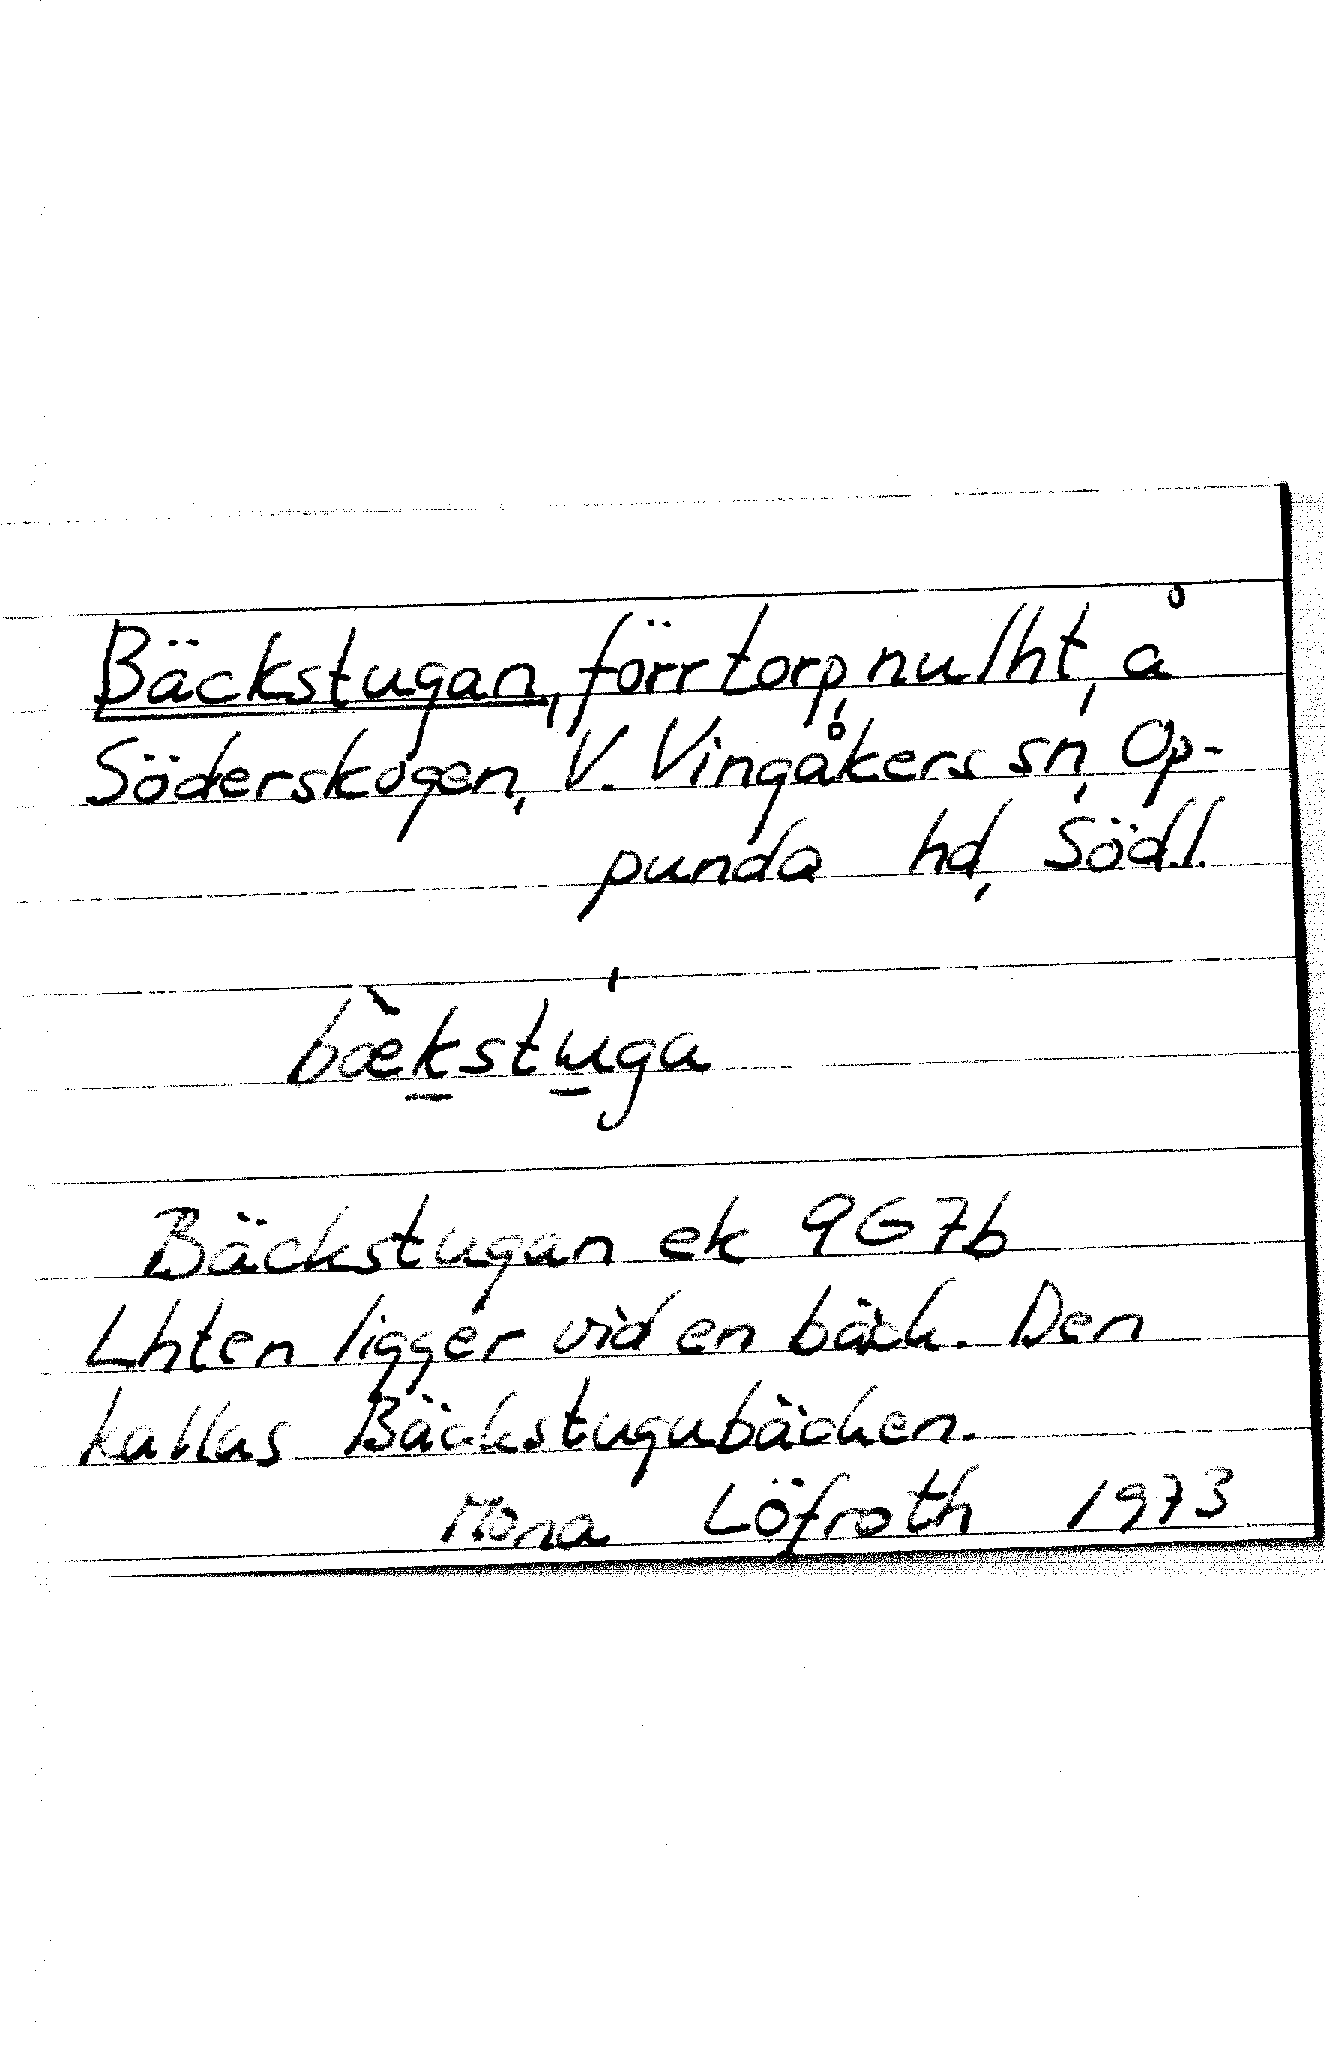 Bäckstugan, förr torp, nu lht, å
Söderskogen, V. Vingåkers sn, Op-
punda hd, Södl.
bæ̀kstu̱ga
Bäckstugan ek 9G7b
Lhten ligger vid en bäck. Den
kallas Bäckstugubäcken.
Mona Löfroth 1973